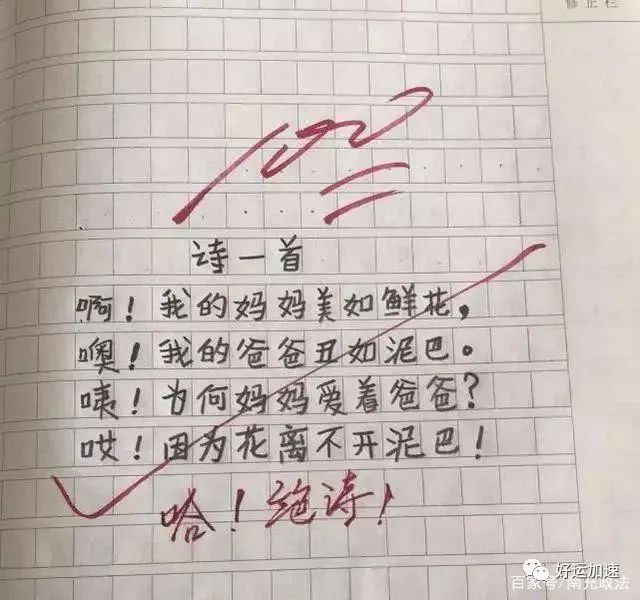 修正栏
100
诗一首
啊！我的妈妈美如鲜花，
噢！我的爸爸丑如泥巴。
咦！为何妈妈爱着爸爸？
哎！因为花离不开泥巴！
哈！绝诗！
好运加速
百家号/南充政法